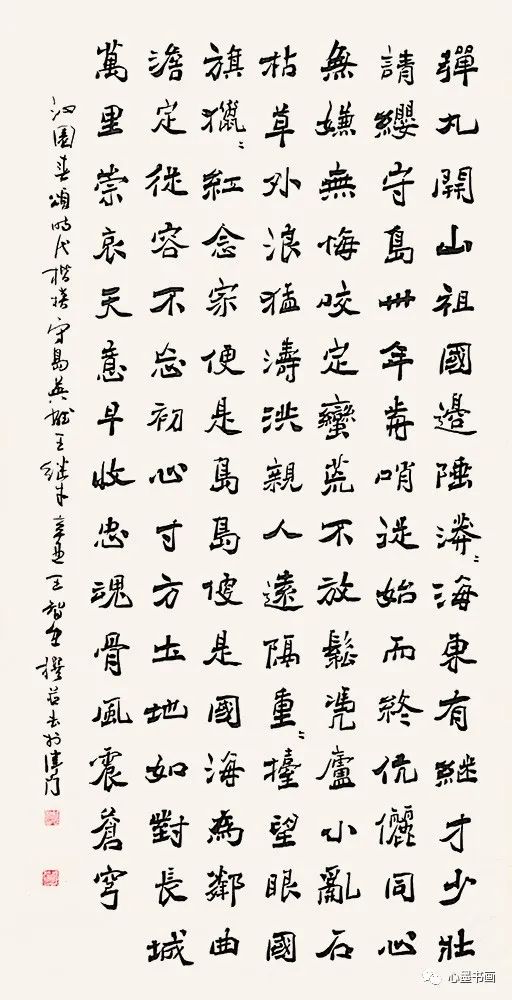 彈丸開山祖國邊陲漭〻海東有繼才少壯
請纓守島卅年崗哨從始而終伉儷同心
無嫌無悔咬定蠻荒不放鬆凴廬小亂石
枯草外浪猛濤洪親人遠隔重〻擡望眼國
旗獵〻紅念家便是島島便是國海為鄰曲
澹定從容不忘初心寸方土地如對長城
萬里崇哀天意早收忠魂骨風震蒼穹
沁園春頌時代楷模守島英雄王继才辛丑王智撰并书於津门
心墨书画